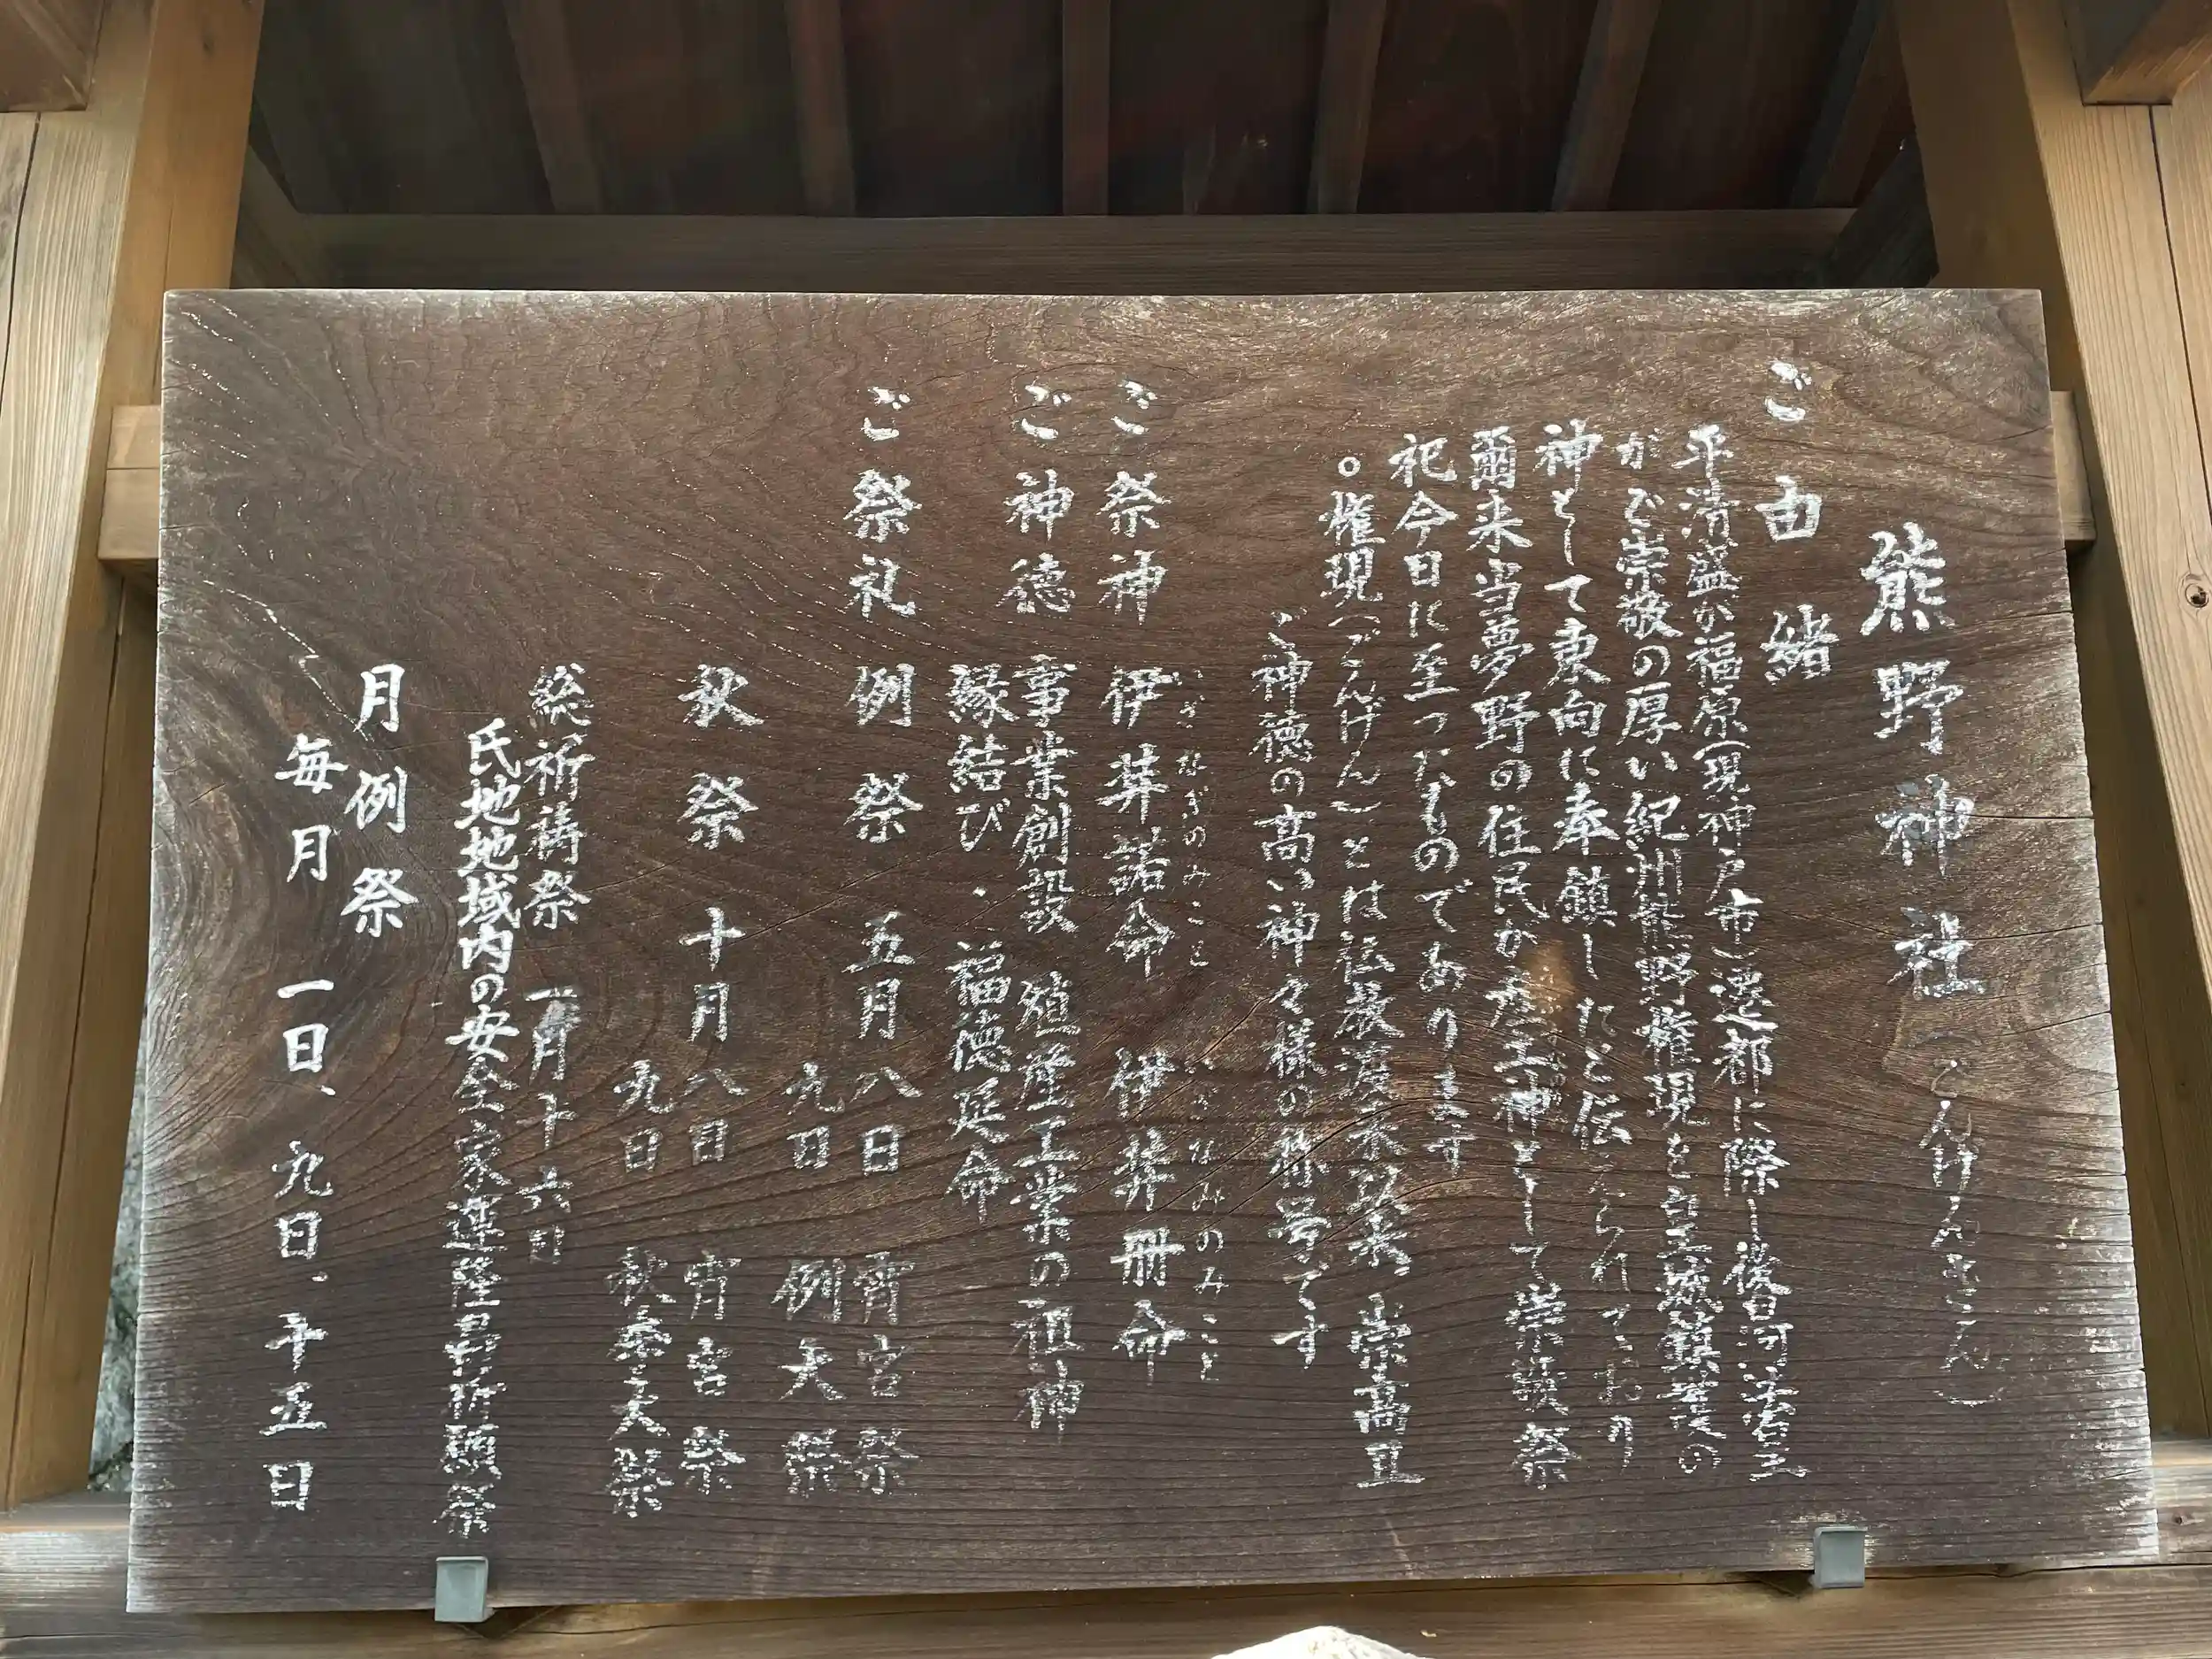 熊野神社（ごんげんさん）
ご由緒
平清盛が福原（現神戸市）遷都に際し後白河法皇
がご崇敬の厚い紀州熊野権現を皇城鎮護の
神として東向に奉鎮したと伝えられており
爾来当夢野の住民が産土神として崇敬祭
祀今日に至ったものであります
○権現（ごんげん）とは仏教渡来以来、崇高且
ご神徳の高い神々様の称号です
ご祭神 伊弉諾命 伊弉冊命
いざなぎのみこと いざなみのみこと
ご神徳 事業創設 殖産工業の祖神
縁結び・福徳延命
ご祭礼 例祭 五月八日 宵宮祭
九日 例大祭
秋祭 十月八日 宵宮祭
九日 秋季大祭
総祈祷祭 一月十六日
氏地地域内の安全家運隆昌祈願祭
月例祭
毎月 一日、九日、十五日